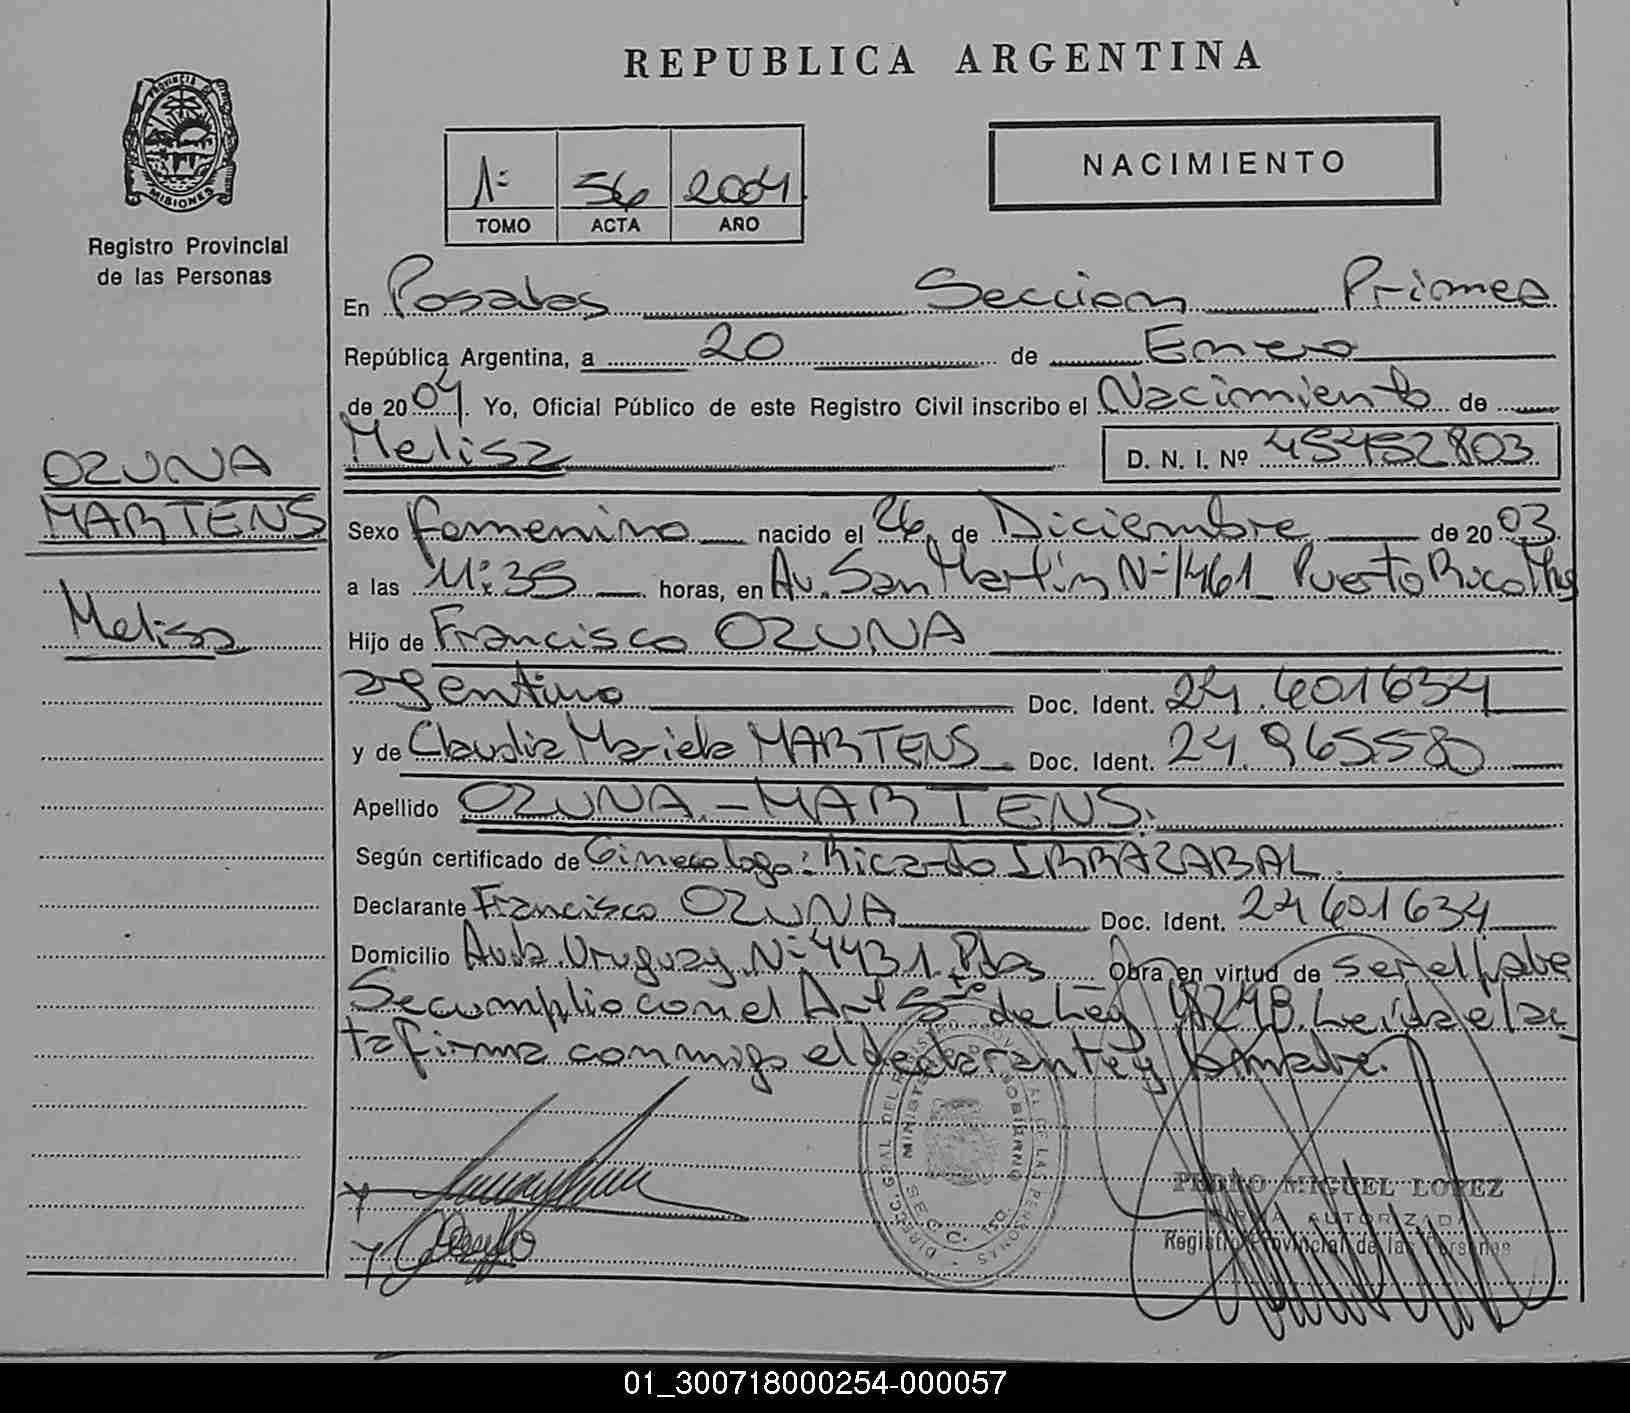 REPUBLICA ARGENTINA
PROVINCIA DE
MISIONES
Registro Provincial
de las Personas
NACIMIENTO
1º 56 2004
TOMO ACTA AÑO
En Posadas Seccion Primera
República Argentina, a 20 de Enero
de 2004. Yo, Oficial Público de este Registro Civil inscribo el Nacimiento de
Melisa D. N. I. Nº 45452803
OZUNA
MARTENS
Melisa
Sexo femenino nacido el 26 de Diciembre de 2003.
a las 11:35 horas, en Av. San Martín Nº 1461 Puerto Rico Mnes
Hijo de Francisco OZUNA
argentino Doc. Ident. 24.601634
y de Claudia Mariela MARTENS Doc. Ident. 24.965580
Apellido OZUNA - MARTENS.
Según certificado de Ginecologo: Ricardo IRRAZABAL.
Declarante Francisco OZUNA Doc. Ident. 24601634
Domicilio Avda. Uruguay Nº 4431 Pdas Obra en virtud de ser el padre
Se cumplio con el Art 5to de Ley 18248. Leída el ac_
ta firma conmigo el declarante y la madre.
DIRECC. GRAL DEL REGISTRO PROVINCIAL DE LAS PERSONAS
MINISTERIO DE GOBIERNO
PEDRO MIGUEL LOPEZ
FIRMA AUTORIZADA
Registro Provincial de las Personas
01_300718000254-000057